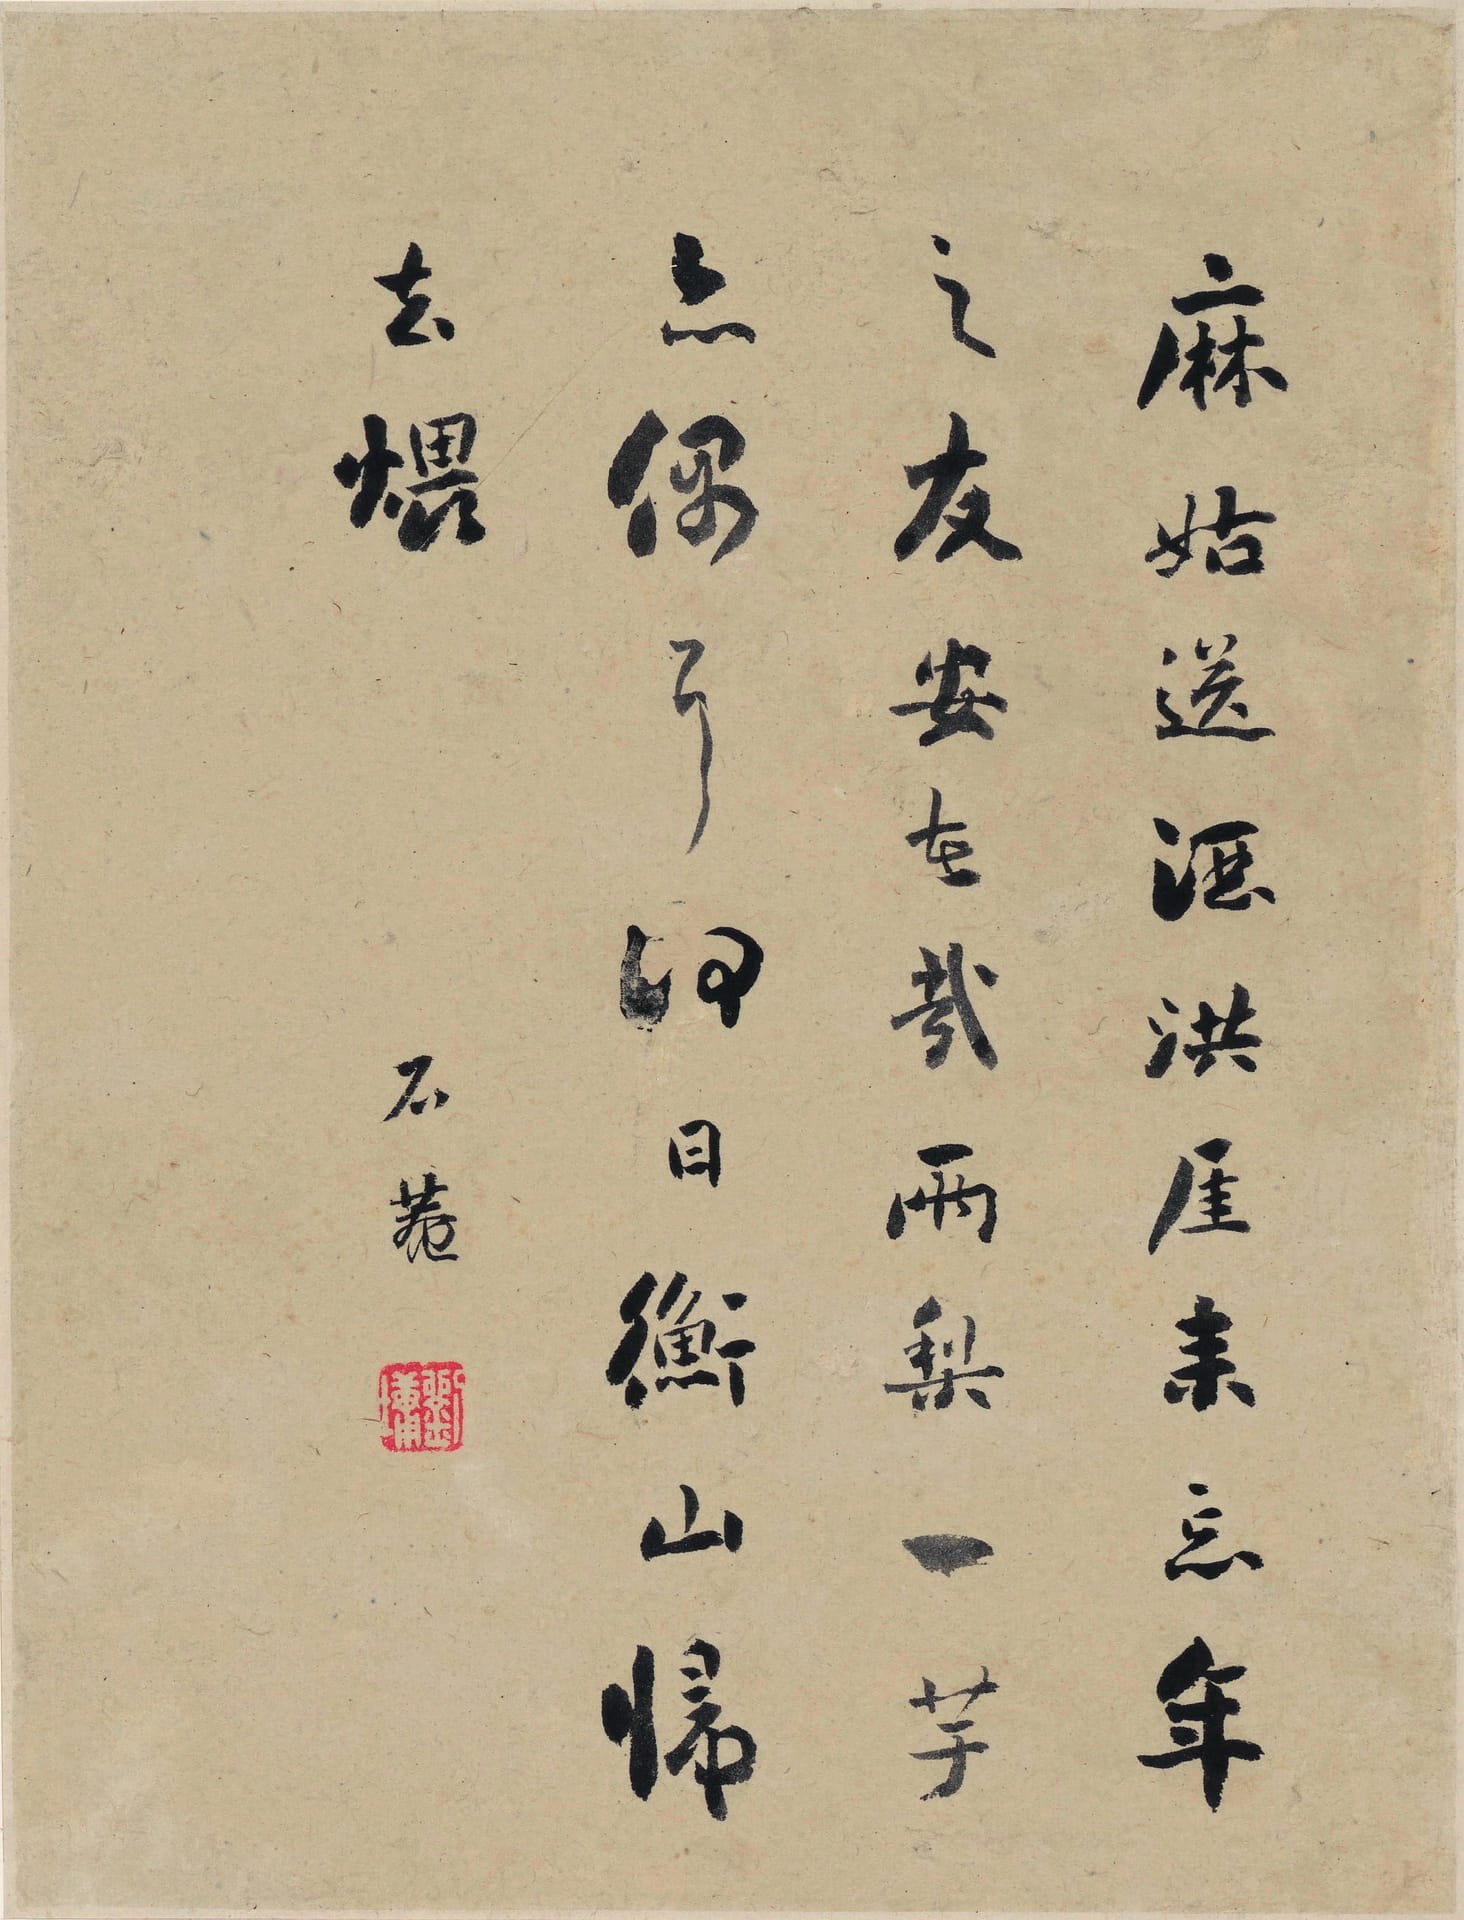 麻姑送酒洪厓来忘年
之友安在哉两梨一芋
亦偶尔何日衡山归
去煨
石菴
刘墉